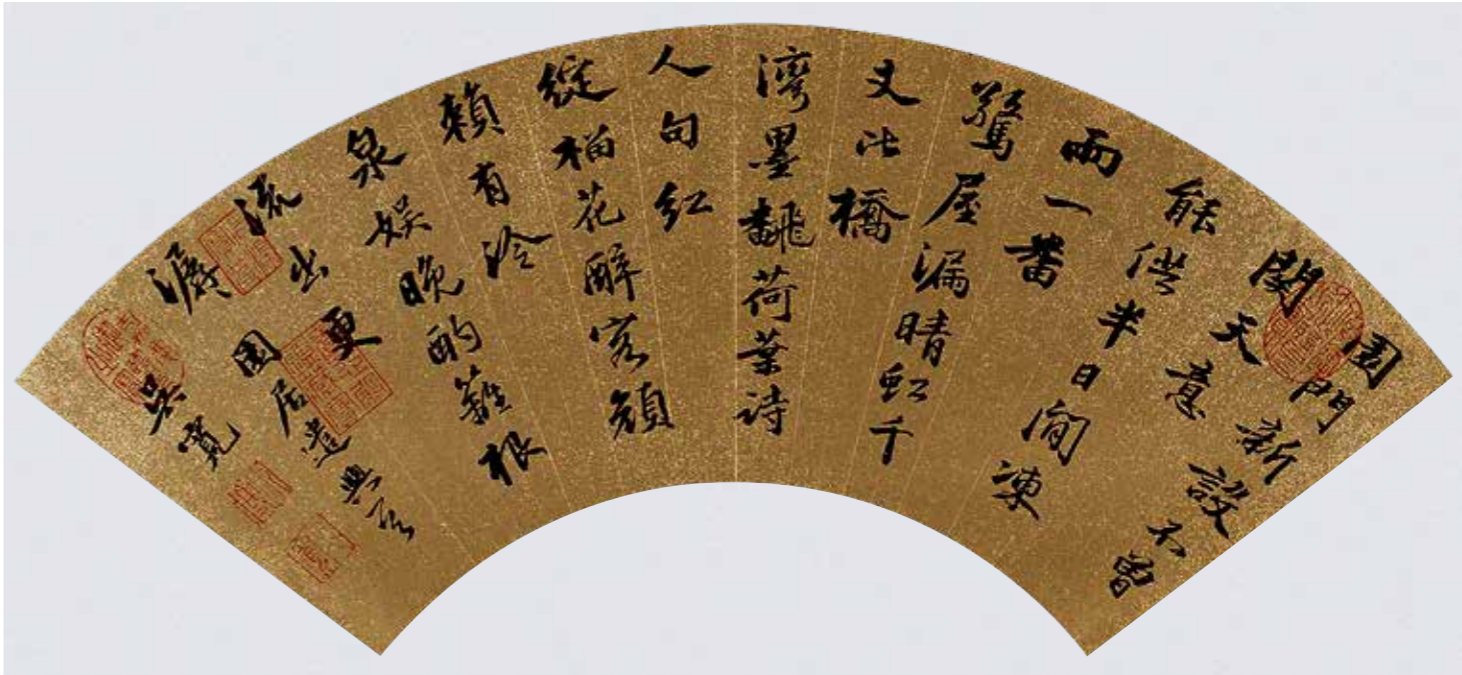 園門新設不曾
関天意
能供半日閒凍
雨一番
驚屋漏晴虹千
丈比橋
灣墨翻荷葉詩
人句紅
綻榴花醉客顏
賴有冷
泉娛晚酌籬根
流出更
潺 園居遣興
吳寬